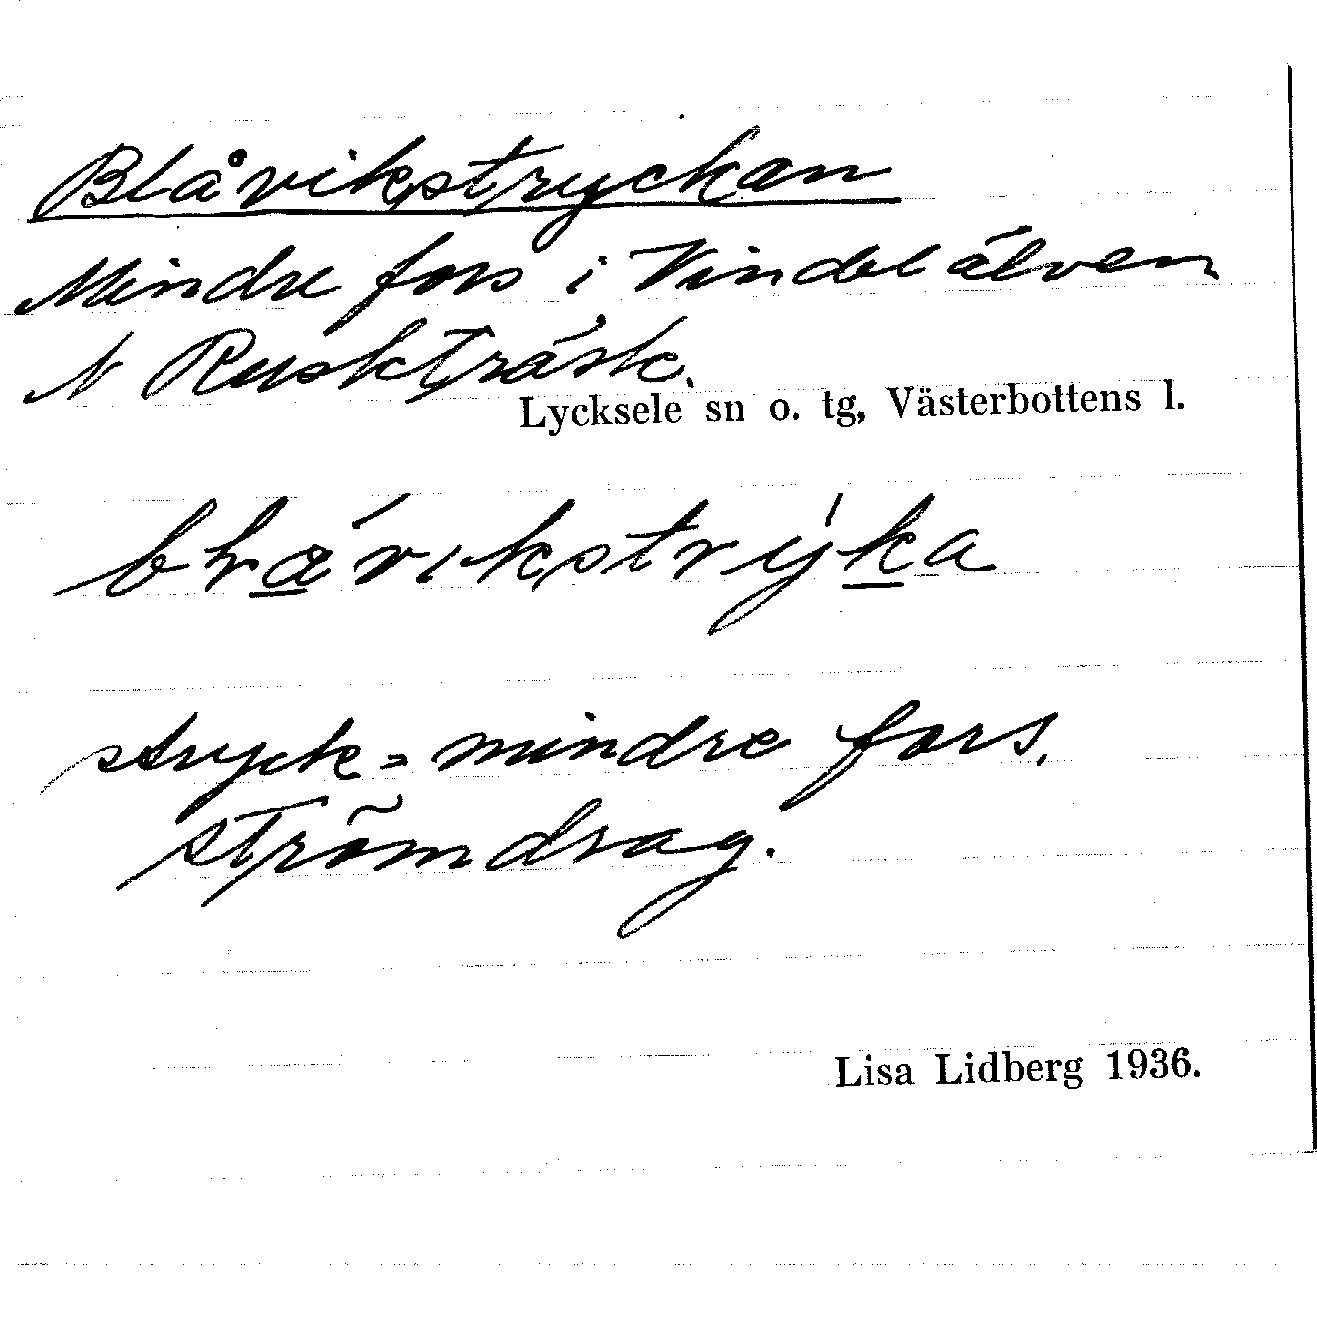 Blåvikstryckan
Mindre fors i Vindelälven
N Ruskträsk.
Lycksele sn o. tg, Västerbottens l.
stryck = mindre fors,
strömdrag.
Lisa Lidberg 1936.